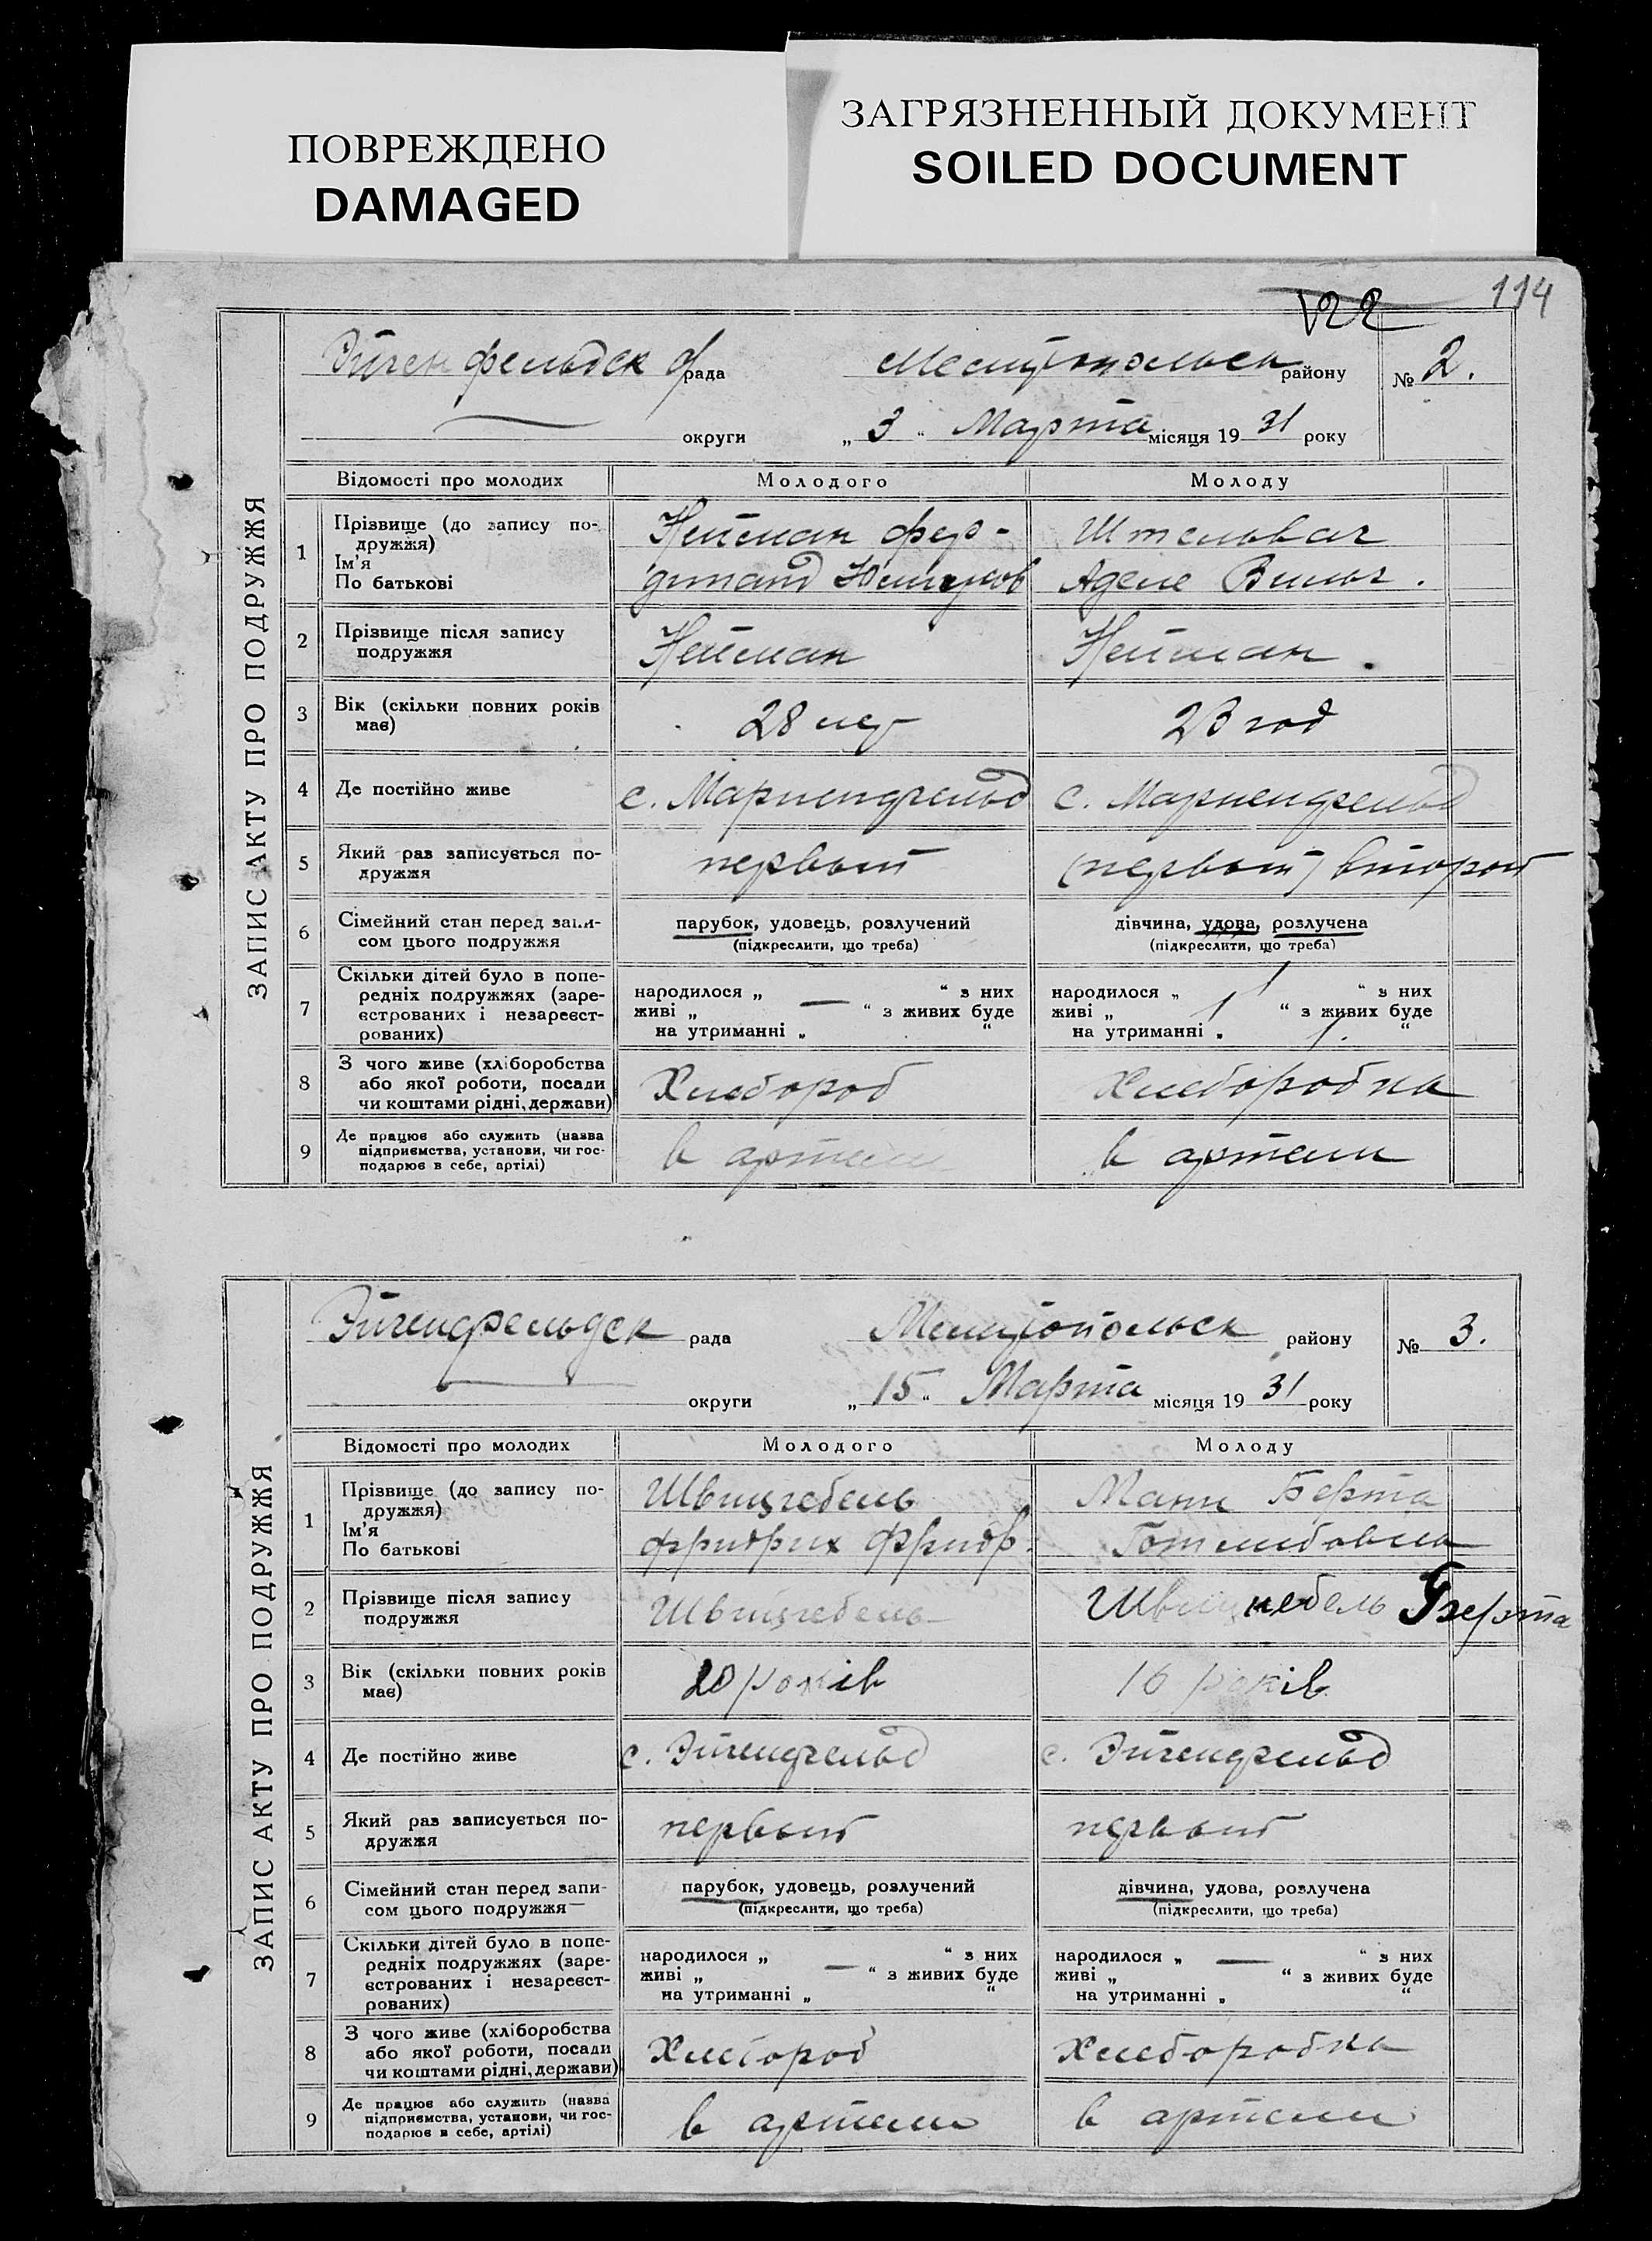 ПОВРЕЖДЕНО
DAMAGED
ЗАГРЯЗНЕННЫЙ ДОКУМЕНТ
SOILED DOCUMENT
114
122
ЗАПИС АКТУ ПРО ПОДРУЖЖЯ
Эйгенфельдск рада Мелитопольск району № 2.
округи „ 3 “ Марта місяця 19 31 року
Відомості про молодих Молодого Молоду
1 Прізвище (до запису по-
дружжя)
Ім'я
По батькові
Нейман Фер-
динанд
Штельвах
Аделе Вильг.
2 Прізвище після запису
подружжя
Нейман Нейман.
3 Вік (скільки повних років
має)
28 лет 23 год
4 Де постійно живе с. Мариенфельд с. Мариенфельд
5 Який раз записується по-
дружжя
первый (первый) второй
6 Сімейний стан перед запи-
сом цього подружжя
парубок, удовець, розлучений
(підкреслити, що треба)
дівчина, удова, розлучена
(підкреслити, що треба)
7 Скільки дітей було в попе-
редніх подружжях (заре-
єстрованих і незареєст-
рованих)
народилося „ — “ з них
живі „ “ з живих буде
на утриманні „ “
народилося „ 1 “ з них
живі „ 1 “ з живих буде
на утриманні „ 1. “
8 З чого живе (хліборобства
або якої роботи, посади
чи коштами рідні, держави)
Хлебороб Хлеборобка
9 Де працює або служить (назва
підприємства, установи, чи гос-
подарює в себе, артілі)
в артели в артели
ЗАПИС АКТУ ПРО ПОДРУЖЖЯ
Эйгенфельдск рада Мелитопольск району № 3.
округи „ 15 “ Марта місяця 19 31 року
Відомості про молодих Молодого Молоду
1 Прізвище (до запису по-
дружжя)
Ім'я
По батькові
Швицгебель
Фридрих Фридр.
Манн Берта
Готлибовна
2 Прізвище після запису
подружжя
Швицгебель Швицгебель Берта
3 Вік (скільки повних років
має)
20 років 16 років
4 Де постійно живе с. Эйгенфельд с. Эйгенфельд
5 Який раз записується по-
дружжя
первый первый
6 Сімейний стан перед запи-
сом цього подружжя
парубок, удовець, розлучений
(підкреслити, що треба)
дівчина, удова, розлучена
(підкреслити, що треба)
7 Скільки дітей було в попе-
редніх подружжях (заре-
єстрованих і незареєст-
рованих)
народилося „ — “ з них
живі „ “ з живих буде
на утриманні „ “
народилося „ — “ з них
живі „ “ з живих буде
на утриманні „ “
8 З чого живе (хліборобства
або якої роботи, посади
чи коштами рідні, держави)
Хлебороб Хлеборобка
9 Де працює або служить (назва
підприємства, установи, чи гос-
подарює в себе, артілі)
в артели в артели